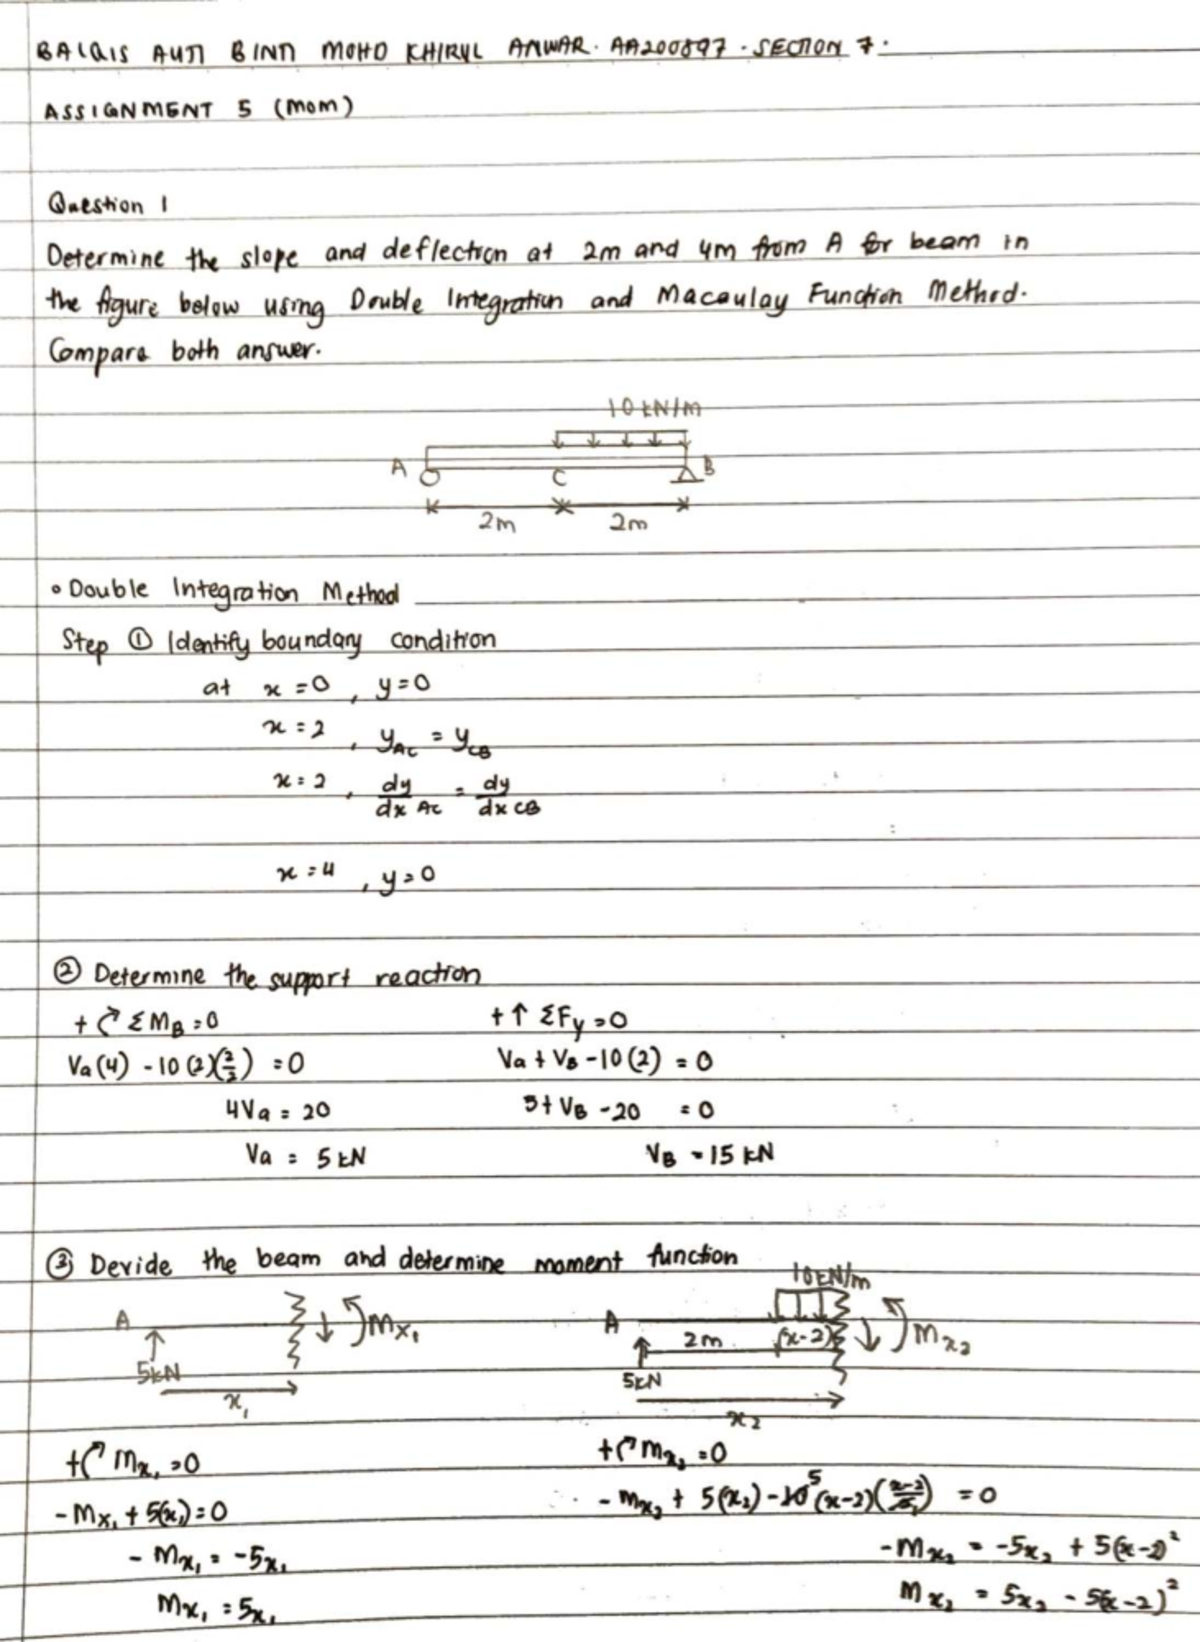 BALQIS AUTI BINTI MOHD KHIRUL ANWAR. AA200897. SECTION 7.
ASSIGNMENT 5 (MOM)
Question 1
Determine the slope and deflection at 2m and 4m from A for beam in
the figure below using Double Integration and Macaulay Function Method.
Compare both answer.
10 kN/m
A C B
2m 2m
• Double Integration Method
Step ① Identify boundary condition
at x = 0 , y = 0
x = 2 , yAC = yCB
x = 2 , dy/dx AC = dy/dx CB
x = 4 , y = 0
② Determine the support reaction
+ ↷ ΣMB = 0 + ↑ ΣFy = 0
Va (4) - 10 (2)(2/2) = 0 Va + VB - 10 (2) = 0
4Va = 20 5 + VB - 20 = 0
Va = 5 kN VB = 15 kN
③ Devide the beam and determine moment function
10 kN/m
A Mx₁ A 2m (x-2) Mx₂
5kN 5kN
x₁ x₂
+↷ Mx₁ = 0 +↷ Mx₂ = 0
- Mx₁ + 5(x₁) = 0 - Mx₂ + 5(x₂) - 10 5 (x-2)(x-2/2) = 0
- Mx₁ = -5x₁ - Mx₂ = -5x₂ + 5(x-2)²
Mx₁ = 5x₁ Mx₂ = 5x₂ - 5(x-2)²